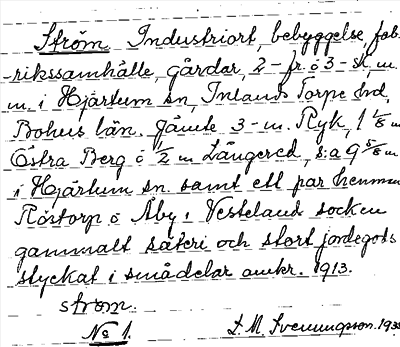 Ström. Industriort, bebyggelse, fab-
-rikssamhälle, gårdar, 2-fr. o 3-sk, m.
m. i Hjärtum sn, Inlands Torpe hd,
Bohus län. Jämte 3-m. Ryk, 1 1/8 m
Östra Berg o 1/2 m Längered, s:a 9 5/8 m
i Hjärtum sn. samt ett par hemman
Röstorp o Åby i Västerlanda socken
gammalt säteri och stort jordegods
styckat i smådelar omkr. 1913.
ström.
No 1.
L. M. Svenungsson.